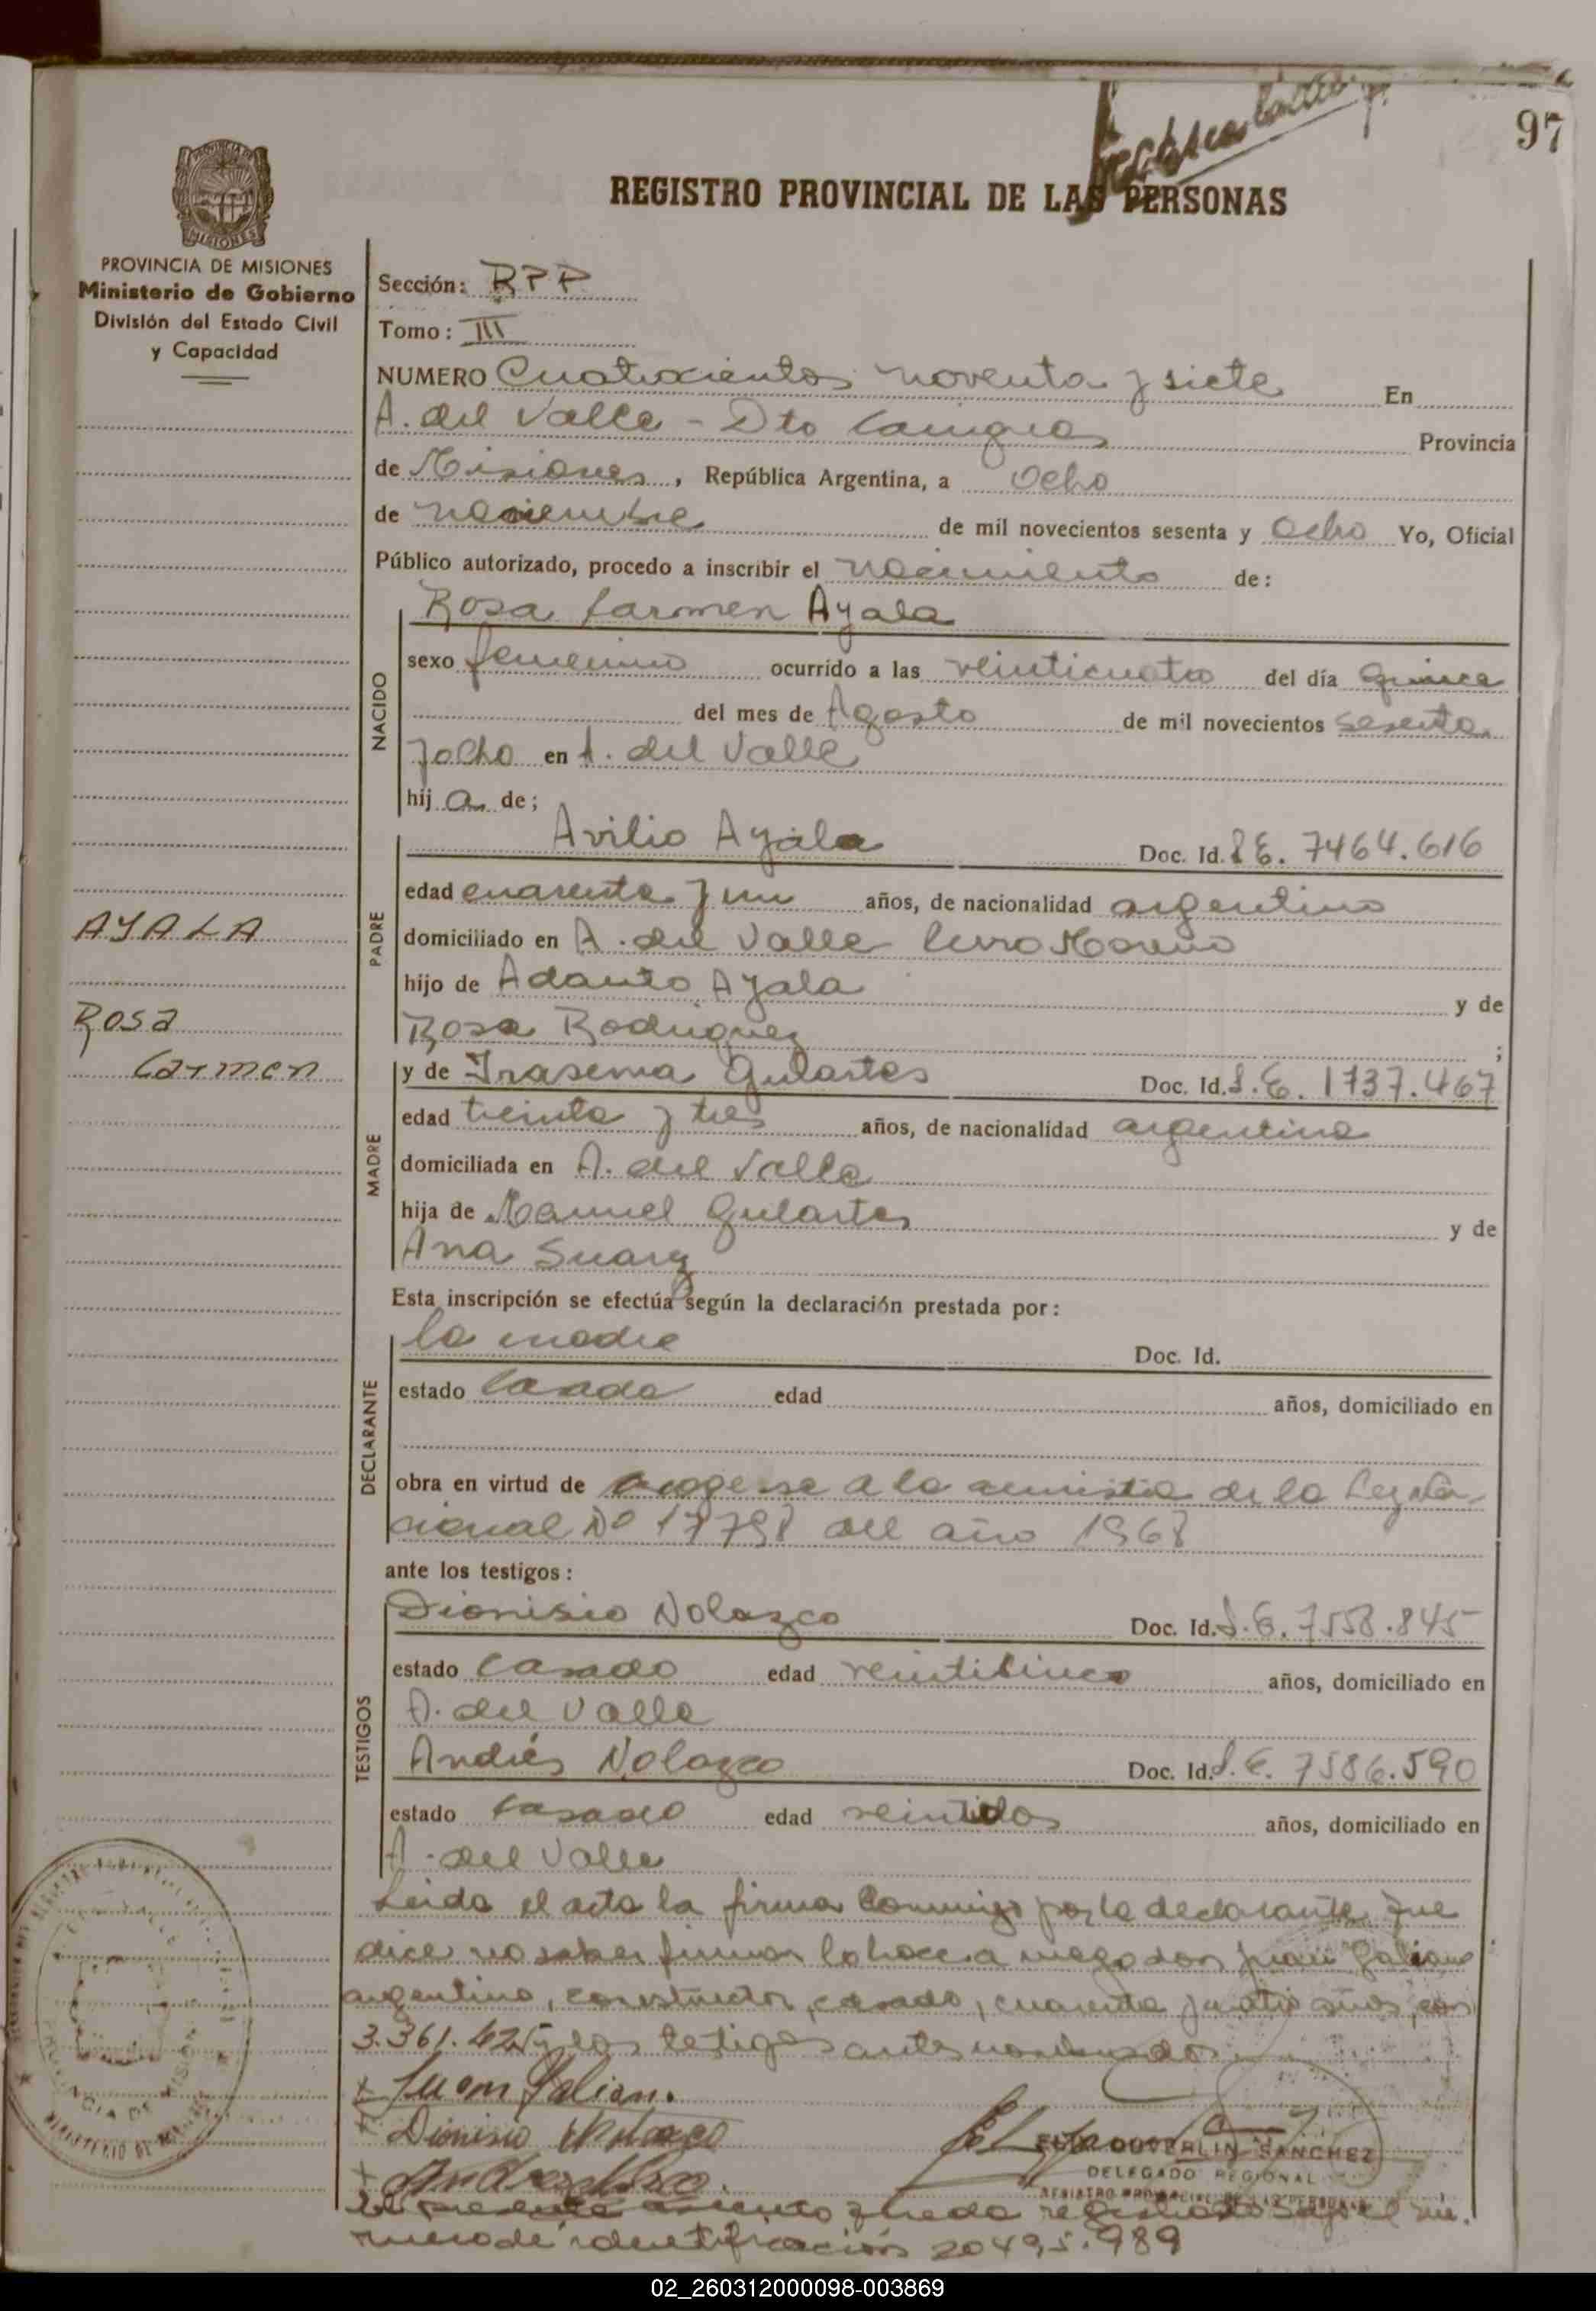 97
REGISTRO PROVINCIAL DE LAS PERSONAS
MISIONES
PROVINCIA DE MISIONES
Ministerio de Gobierno
División del Estado Civil
y Capacidad
Sección: RPP
Tomo: III
NUMERO Cuatrocientos noventa y siete En
A. del Valle - Dto Cainguas Provincia
de Misiones, República Argentina, a Ocho
de noviembre de mil novecientos sesenta y Ocho Yo, Oficial
Público autorizado, procedo a inscribir el nacimiento de:
Rosa Carmen Ayala
NACIDO
sexo femenino ocurrido a las veinticuatro del día quince
del mes de Agosto de mil novecientos sesenta
y ocho en A. del Valle
hij a de;
Avilio Ayala Doc. Id. L E. 7464.616
PADRE
edad cuarenta y un años, de nacionalidad argentino
AYALA
domiciliado en A. del Valle Cerro Moreno
hijo de Adanto Ayala y de
Rosa
Rosa Rodriguez ;
Carmen
y de Irasema Gulartes Doc. Id. L.E. 1737.467
MADRE
edad treinta y tres años, de nacionalidad argentina
domiciliada en A. del Valle
hija de Manuel Gulartes y de
Ana Suarez
Esta inscripción se efectúa según la declaración prestada por:
la madre Doc. Id.
DECLARANTE
estado Casada edad años, domiciliado en
obra en virtud de acogerse a la amnistia de la Ley Na-
cional Nº 17798 del año 1968
ante los testigos:
Dionisio Nolazco Doc. Id. L.E. 7558.845
TESTIGOS
estado Casado edad veinticinco años, domiciliado en
A. del Valle
Andrés Nolazco Doc. Id. L.E. 7586.590
estado Casado edad veintidos años, domiciliado en
A. del Valle
Leida el acta la firma conmigo por la declarante que
dice no saber firmar lo hace a ruego don Juan Galiano
argentino, constructor, casado, cuarenta y cuatro años,
3.361.42 y los testigos antes nombrados
x Juan Galian.
x Dionisio Nolazco
x
SANCHEZ
DELEGADO REGIONAL
REGISTRO PROVINCIAL DE LAS PERSONAS
El presente asiento queda registrado bajo el nú-
mero de identificación 20495.989
02_260312000098-003869